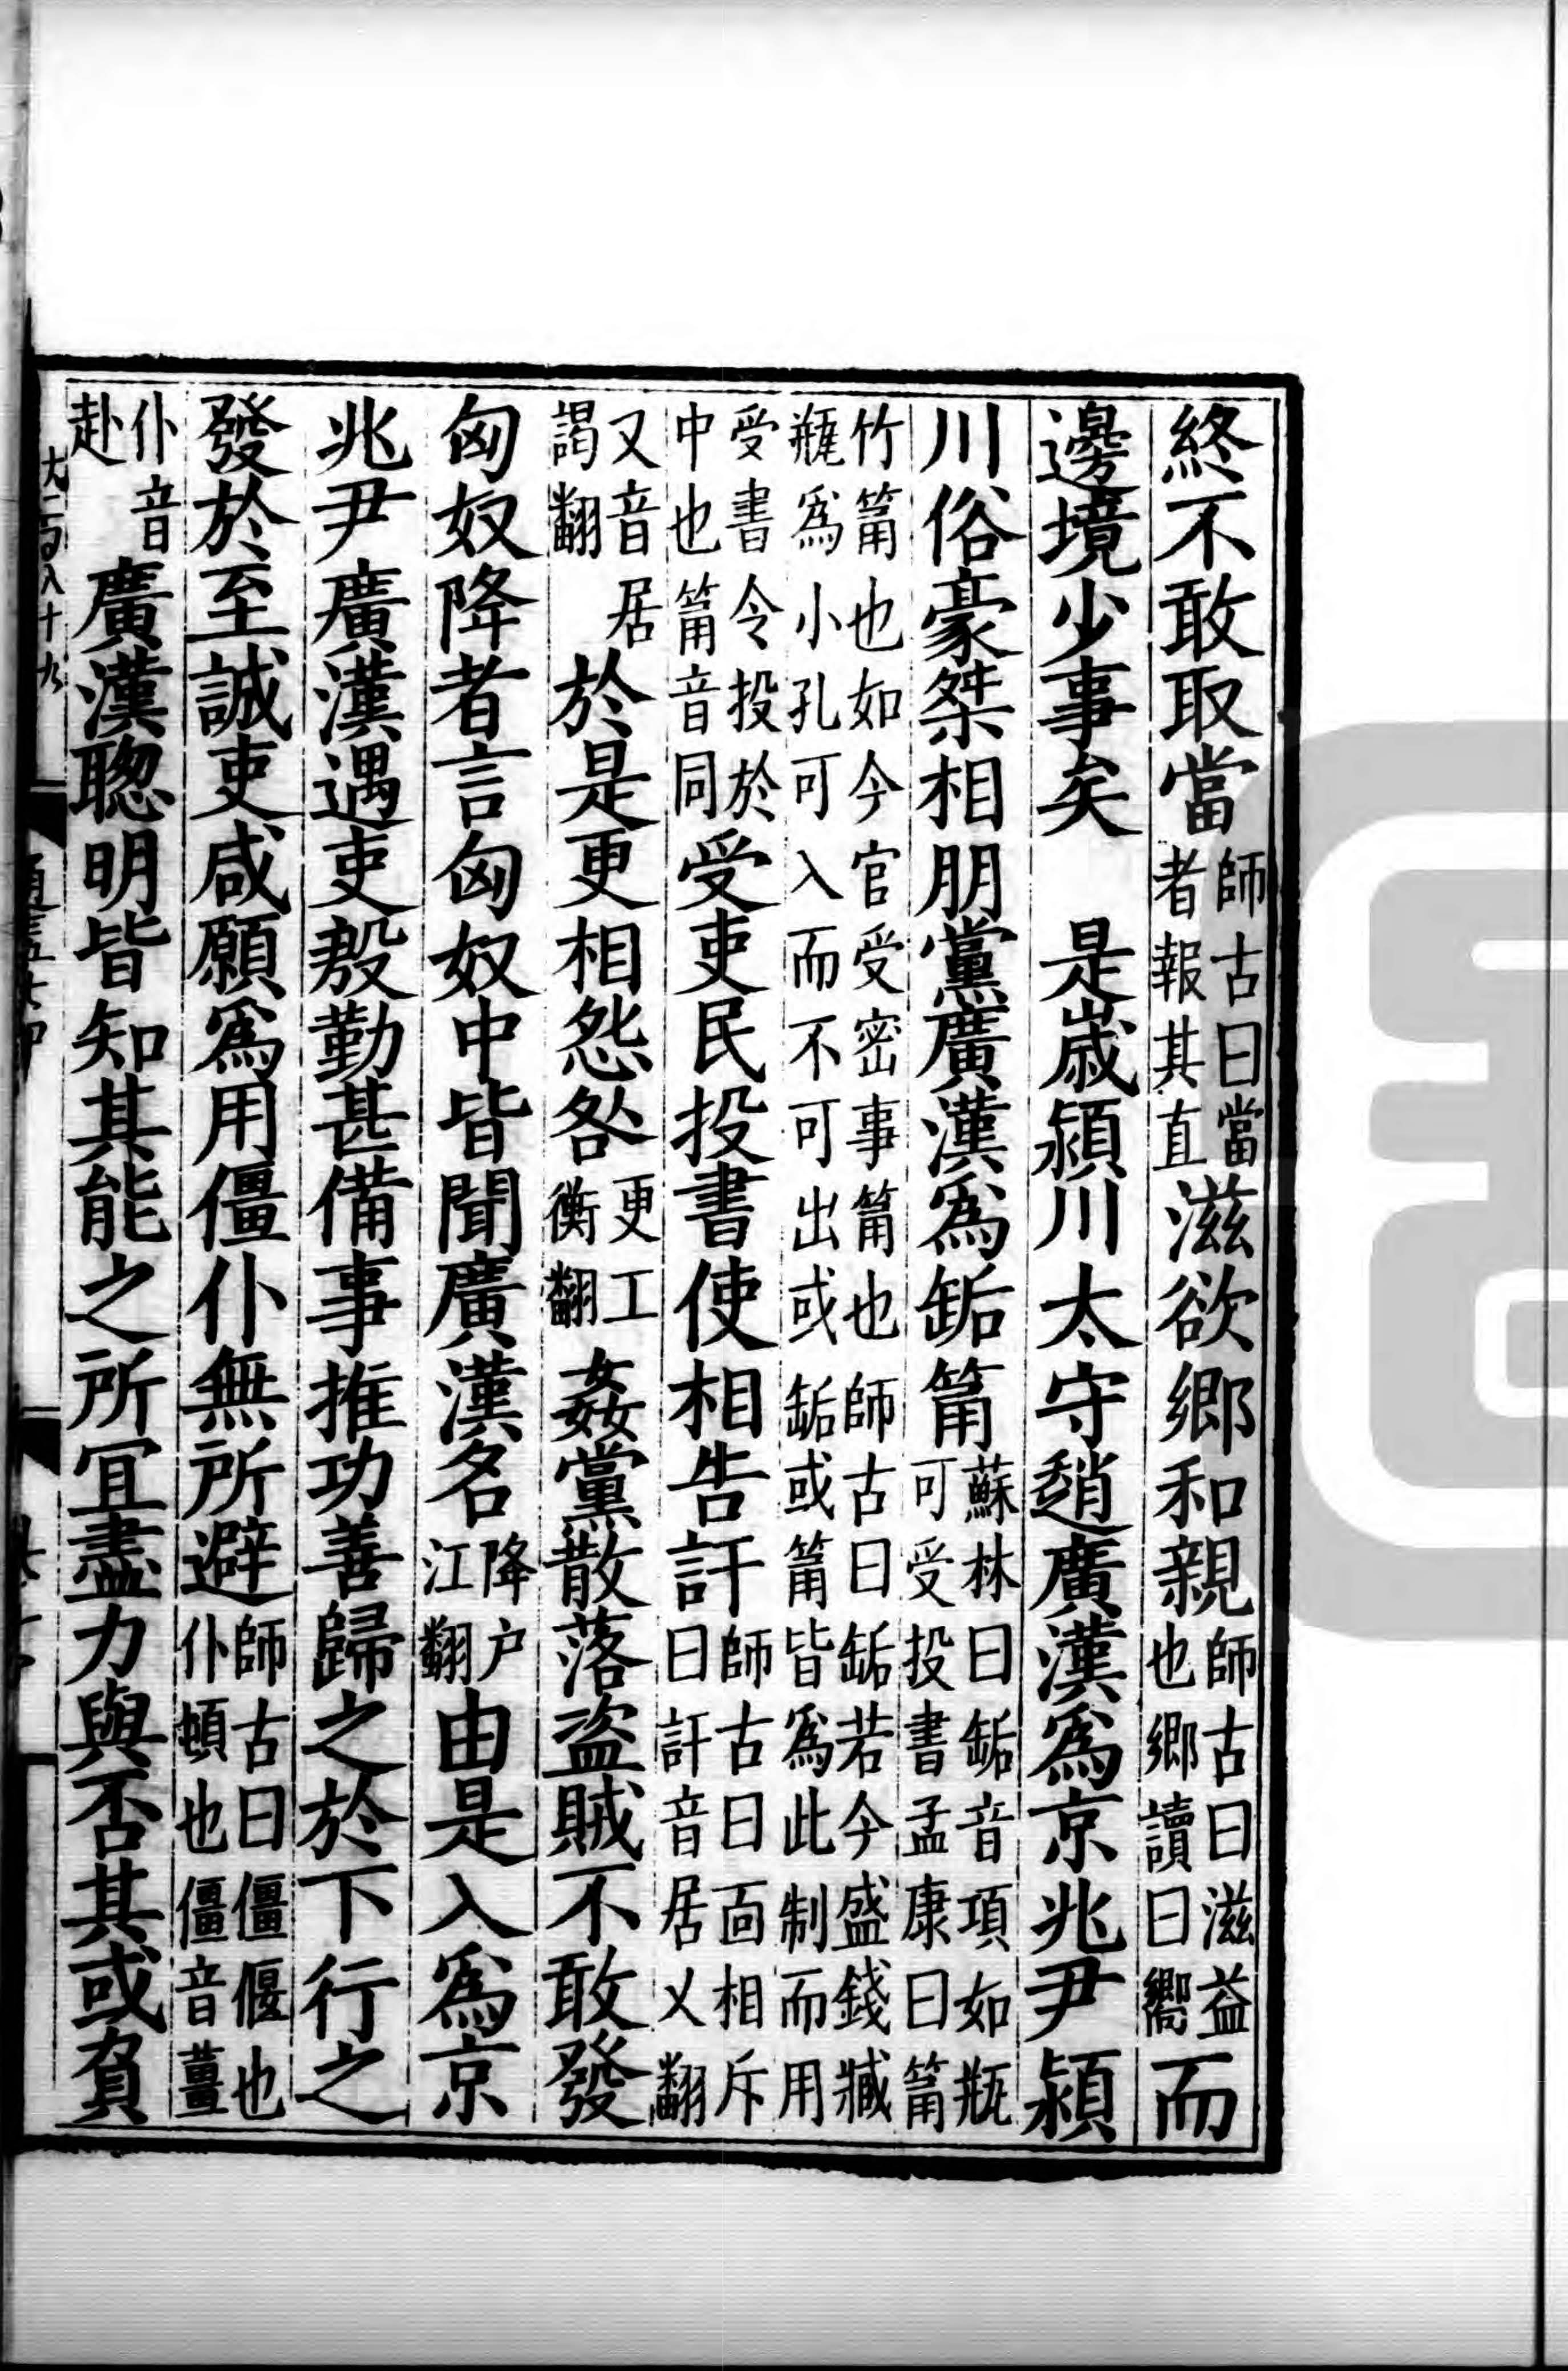 終不敢取當師古曰當者報其直滋欲鄉和親師古曰滋益也鄉讀曰嚮而
邊境少事矣　是歲潁川太守趙廣漢爲京兆尹潁
川俗豪桀相朋黨廣漢爲缿筩蘇林曰缿音項如瓶可受投書孟康曰筩
竹筩也如今官受密事筩也師古曰缿若今盛錢臧瓶爲小孔可入而不可出或缿或筩皆爲此制而用
受書令投於中也筩音同受吏民投書使相告訐師古曰面相斥曰訐音居乂翻
又音居謁翻於是更相怨咎更工衡翻姦黨散落盜賊不敢發
匈奴降者言匈奴中皆聞廣漢名降户江翻由是入爲京
兆尹廣漢遇吏殷勤甚備事推功善歸之於下行之
發於至誠吏咸願爲用僵仆無所避師古曰僵偃也仆頓也僵音薑
仆音赴廣漢聰明皆知其能之所宜盡力與否其或負